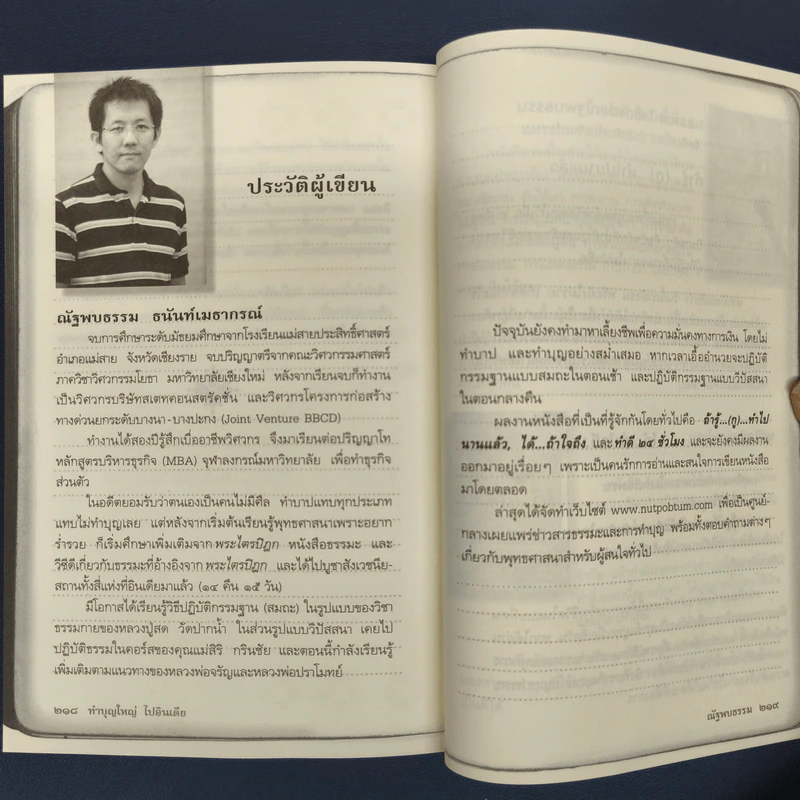 ประวัติผู้เขียน
ณัฐพบธรรม ธนันท์เมธากรณ์
จบการศึกษาระดับมัธยมศึกษาจากโรงเรียนแม่สายประสิทธิ์ศาสตร์
อำเภอแม่สาย จังหวัดเชียงราย จบปริญญาตรีจากคณะวิศวกรรมศาสตร์
ภาควิชาวิศวกรรมโยธา มหาวิทยาลัยเชียงใหม่ หลังจากเรียนจบก็ทำงาน
เป็นวิศวกรบริษัทสเททคอนสตรัคชั่น และวิศวกรโครงการก่อสร้าง
ทางด่วนยกระดับบางนา-บางปะกง (Joint Venture BBCD)
ทำงานได้สองปีรู้สึกเบื่ออาชีพวิศวกร จึงมาเรียนต่อปริญญาโท
หลักสูตรบริหารธุรกิจ (MBA) จุฬาลงกรณ์มหาวิทยาลัย เพื่อทำธุรกิจ
ส่วนตัว
ในอดีตยอมรับว่าตนเองเป็นคนไม่มีศีล ทำบาปแทบทุกประเภท
แทบไม่ทำบุญเลย แต่หลังจากเริ่มต้นเรียนรู้พุทธศาสนาเพราะอยาก
ร่ำรวย ก็เริ่มศึกษาเพิ่มเติมจากพระไตรปิฎก หนังสือธรรมะ และ
วีซีดีเกี่ยวกับธรรมะที่อ้างอิงจากพระไตรปิฎก และได้ไปบูชาสังเวชนีย-
สถานทั้งสี่แห่งที่อินเดียมาแล้ว (๑๔ คืน ๑๕ วัน)
มีโอกาสได้เรียนรู้วิธีปฏิบัติกรรมฐาน (สมถะ) ในรูปแบบของวิชา
ธรรมกายของหลวงปู่สด วัดปากน้ำ ในส่วนรูปแบบวิปัสสนา เคยไป
ปฏิบัติธรรมในคอร์สของคุณแม่สิริ กรินชัย และตอนนี้กำลังเรียนรู้
เพิ่มเติมตามแนวทางของหลวงพ่อจรัญและหลวงพ่อปราโมทย์
๒๑๘ ทำบุญใหญ่ ไปอินเดีย
ปัจจุบันยังคงทำมาหาเลี้ยงชีพเพื่อความมั่นคงทางการเงิน โดยไม่
ทำบาป และทำบุญอย่างสม่ำเสมอ หากเวลาเอื้ออำนวยจะปฏิบัติ
กรรมฐานแบบสมถะในตอนเช้า และปฏิบัติกรรมฐานแบบวิปัสสนา
ในตอนกลางคืน
ผลงานหนังสือที่เป็นที่รู้จักกันโดยทั่วไปคือ ถ้ารู้...(กู)...ทำไป
นานแล้ว, ได้...ถ้าใจถึง และ ทำดี ๒๔ ชั่วโมง และจะยังคงมีผลงาน
ออกมาอยู่เรื่อยๆ เพราะเป็นคนรักการอ่านและสนใจการเขียนหนังสือ
มาโดยตลอด
ล่าสุดได้จัดทำเว็บไซต์ www.nutpobtum.com เพื่อเป็นศูนย์-
กลางเผยแพร่ข่าวสารธรรมะและการทำบุญ พร้อมทั้งตอบคำถามต่างๆ
เกี่ยวกับพุทธศาสนาสำหรับผู้สนใจทั่วไป
ณัฐพบธรรม ๒๑๙